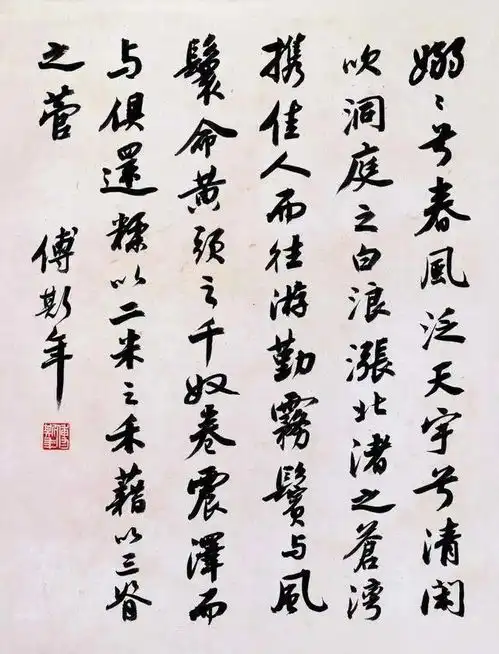 嫋〻兮春風泛天宇兮清閑
吹洞庭之白浪漲北渚之蒼灣
携佳人而往游勤霧鬢与風
鬟命黄頭之千奴卷震澤而
与俱還糅以二米之禾藉以三脊
之菅
傅斯年
傅斯年